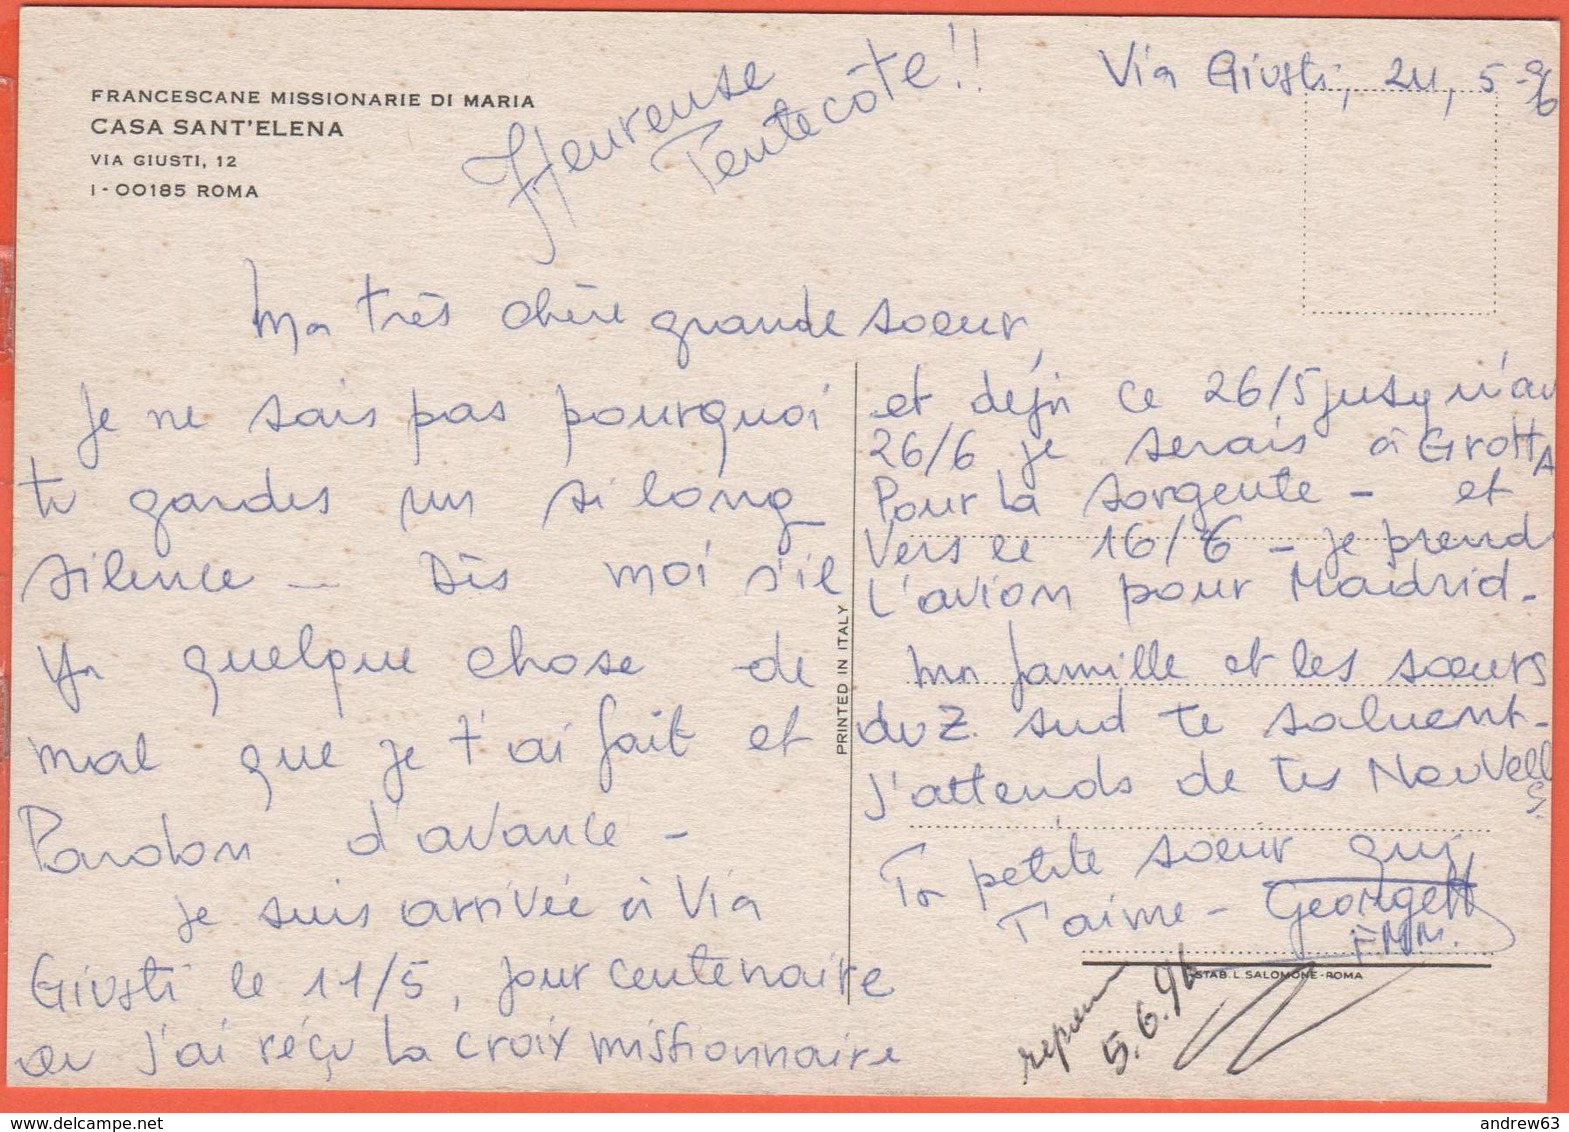 FRANCESCANE MISSIONARIE DI MARIA
CASA SANT'ELENA
VIA GIUSTI, 12
I - 00185 ROMA
Heureuse
Pentecôte!!
Via Giusti, 24, 5-96
Ma très chère grande soeur,
Je ne sais pas pourquoi
tu gardes un si long
silence - Dis moi s'il
ya quelque chose de
mal que je t'ai fait et
Pardon d'avance -
je suis arrivée à Via
Giusti le 11/5, jour centenaire
où j'ai réçu la croix missionnaire
PRINTED IN ITALY
et déjà ce 26/5 jusqu'au
26/6 je serais à GrottA
Pour la sorgente - et
Vers le 16/6 - je prend
l'avion pour Madrid.
Ma famille et les soeurs
du Z. sud te saluent -
J'attends de tes Nouvelles
Ta petite soeur qui
t'aime - Georgett
FMM.
STAB. L. SALOMONE - ROMA
5.6.96
www.delcampe.net
andrew63